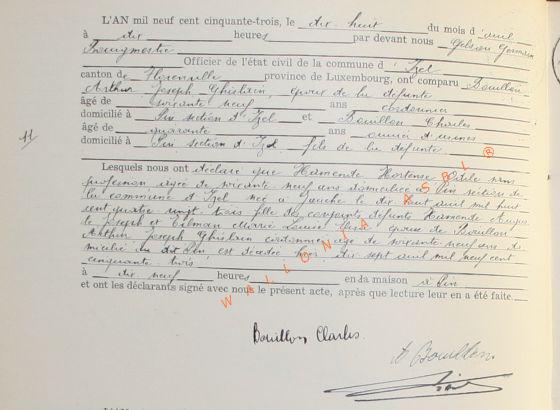 L'AN mil neuf cent cinquante-trois, le dix huit du mois d'avril
à dix heures par devant nous Gelson Germain
Bourgmestre
Officier de l'état civil de la commune d'Izel
canton de Florenville province de Luxembourg, ont comparu Bouillon
Arthur Joseph Ghislain, époux de la défunte
âgé de soixante neuf ans cordonnier
domicilié à Pin section d'Izel et Bouillon Charles
âgé de quarante ans ouvrier d'usines
domicilié à Pin section d'Izel fils de la défunte
11
Lesquels nous ont déclaré que Hamende Hortense Odile sans
profession âgée de soixante neuf ans domiciliée à Pin section de
la commune d'Izel née à Jauche le dix huit avril mil huit
cent quatre vingt trois fille des conjoints défunts Hamende Augus
te Joseph et Tilman Marie Louise épouse de Bouillon
Arthur Joseph Ghislain cordonnier âgé de soixante neuf ans do
micilié au dit Pin, est décédée hier dix sept avril mil neuf cent
cinquante trois
à dix neuf heures en sa maison à Pin
et ont les déclarants signé avec nous le présent acte, après que lecture leur en a été faite.
WALLONIA ASBL ®
Bouillon Charles.
A Bouillon